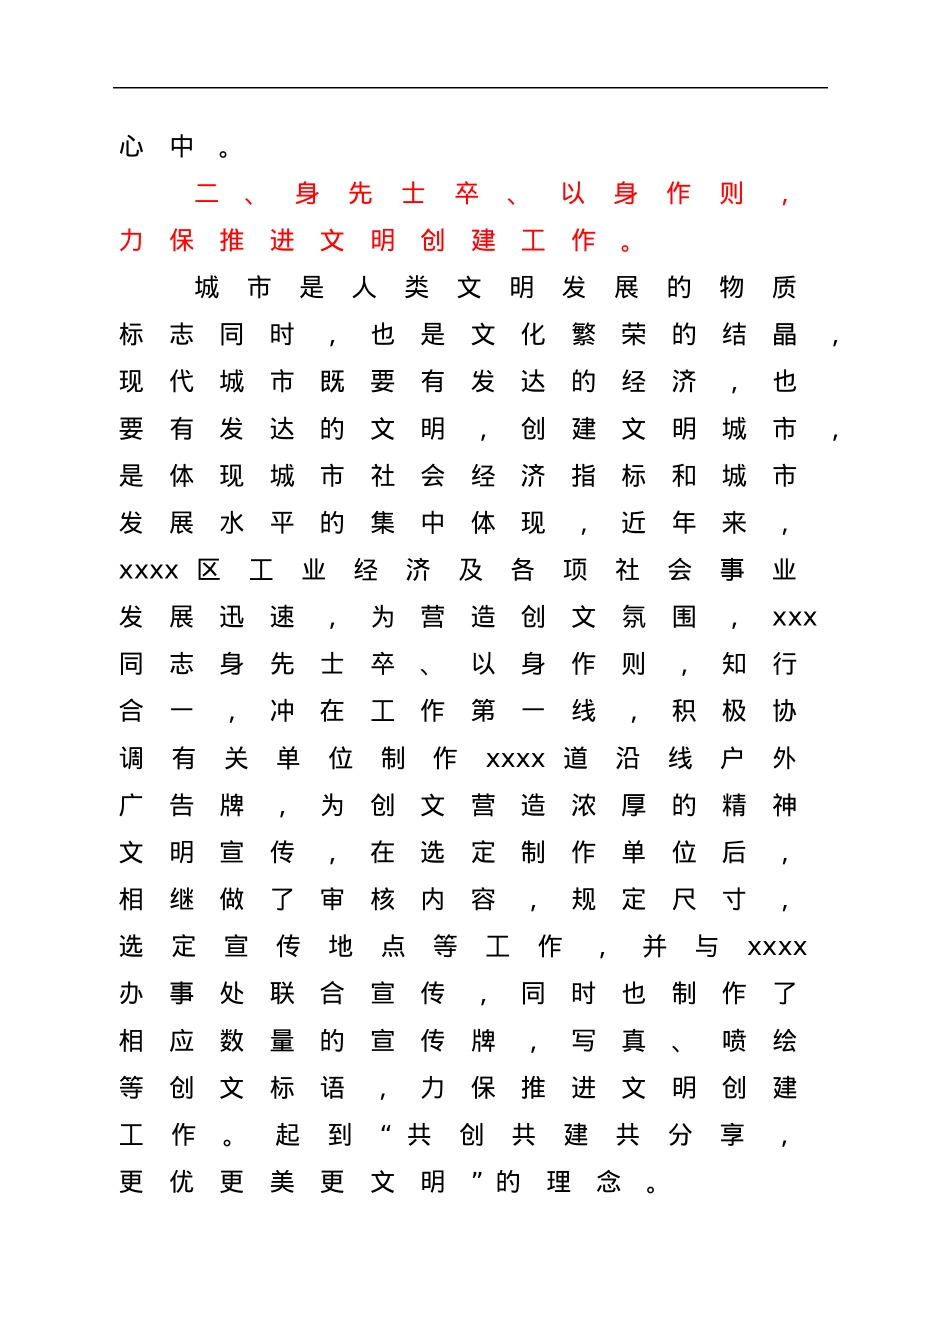 心中。
二、身先士卒、以身作则，
力保推进文明创建工作。
城市是人类文明发展的物质
标志同时，也是文化繁荣的结晶，
现代城市既要有发达的经济，也
要有发达的文明，创建文明城市，
是体现城市社会经济指标和城市
发展水平的集中体现，近年来，
xxxx 区工业经济及各项社会事业
发展迅速，为营造创文氛围，xxx
同志身先士卒、以身作则，知行
合一，冲在工作第一线，积极协
调有关单位制作 xxxx 道沿线户外
广告牌，为创文营造浓厚的精神
文明宣传，在选定制作单位后，
相继做了审核内容，规定尺寸，
选定宣传地点等工作，并与 xxxx
办事处联合宣传，同时也制作了
相应数量的宣传牌，写真、喷绘
等创文标语，力保推进文明创建
工作。起到“共创共建共分享，
更优更美更文明”的理念。